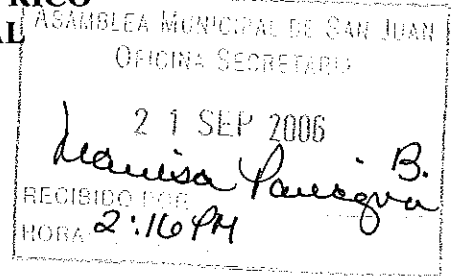 RICO
AL
ASAMBLEA MUNICIPAL DE SAN JUAN
OFICINA SECRETARIO
21 SEP 2006
B.
RECIBIDO POR
HORA 2:16 PM